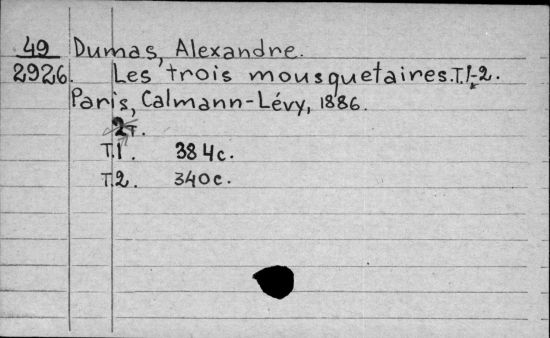 49 Dumas, Alexandre.
2926. Les trois mousquetaires. T.1-2.
Paris, Calmann-Lévy, 1886.
2т.
T.1. 384c.
T.2. 340c.